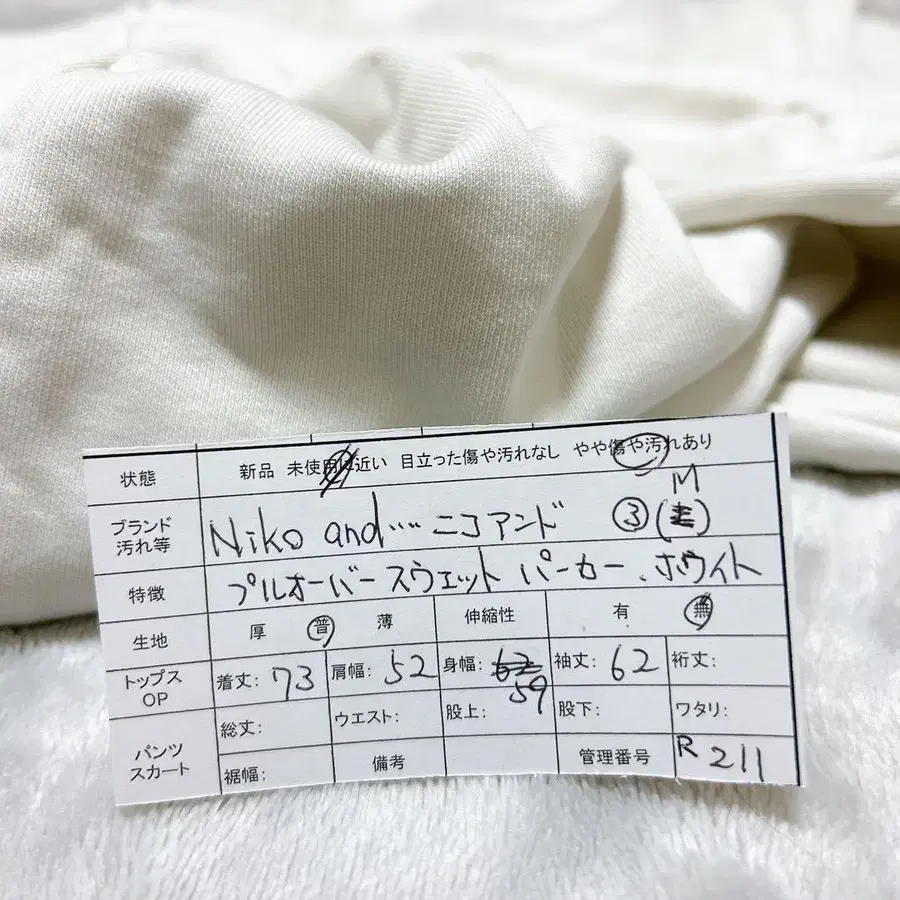 状態 新品 未使用に近い 目立った傷や汚れなし やや傷や汚れあり
ブランド 汚れ等 Niko and.... ニコアンド ③ (M)
特徴 プルオーバースウェット パーカー、ホワイト
生地 厚 普 薄 伸縮性 有 無
トップス OP 着丈: 73 肩幅: 52 身幅: 62 59 袖丈: 62 裄丈:
パンツ スカート 総丈: ウエスト: 股上: 股下: ワタリ:
裾幅: 備考 管理番号 R211